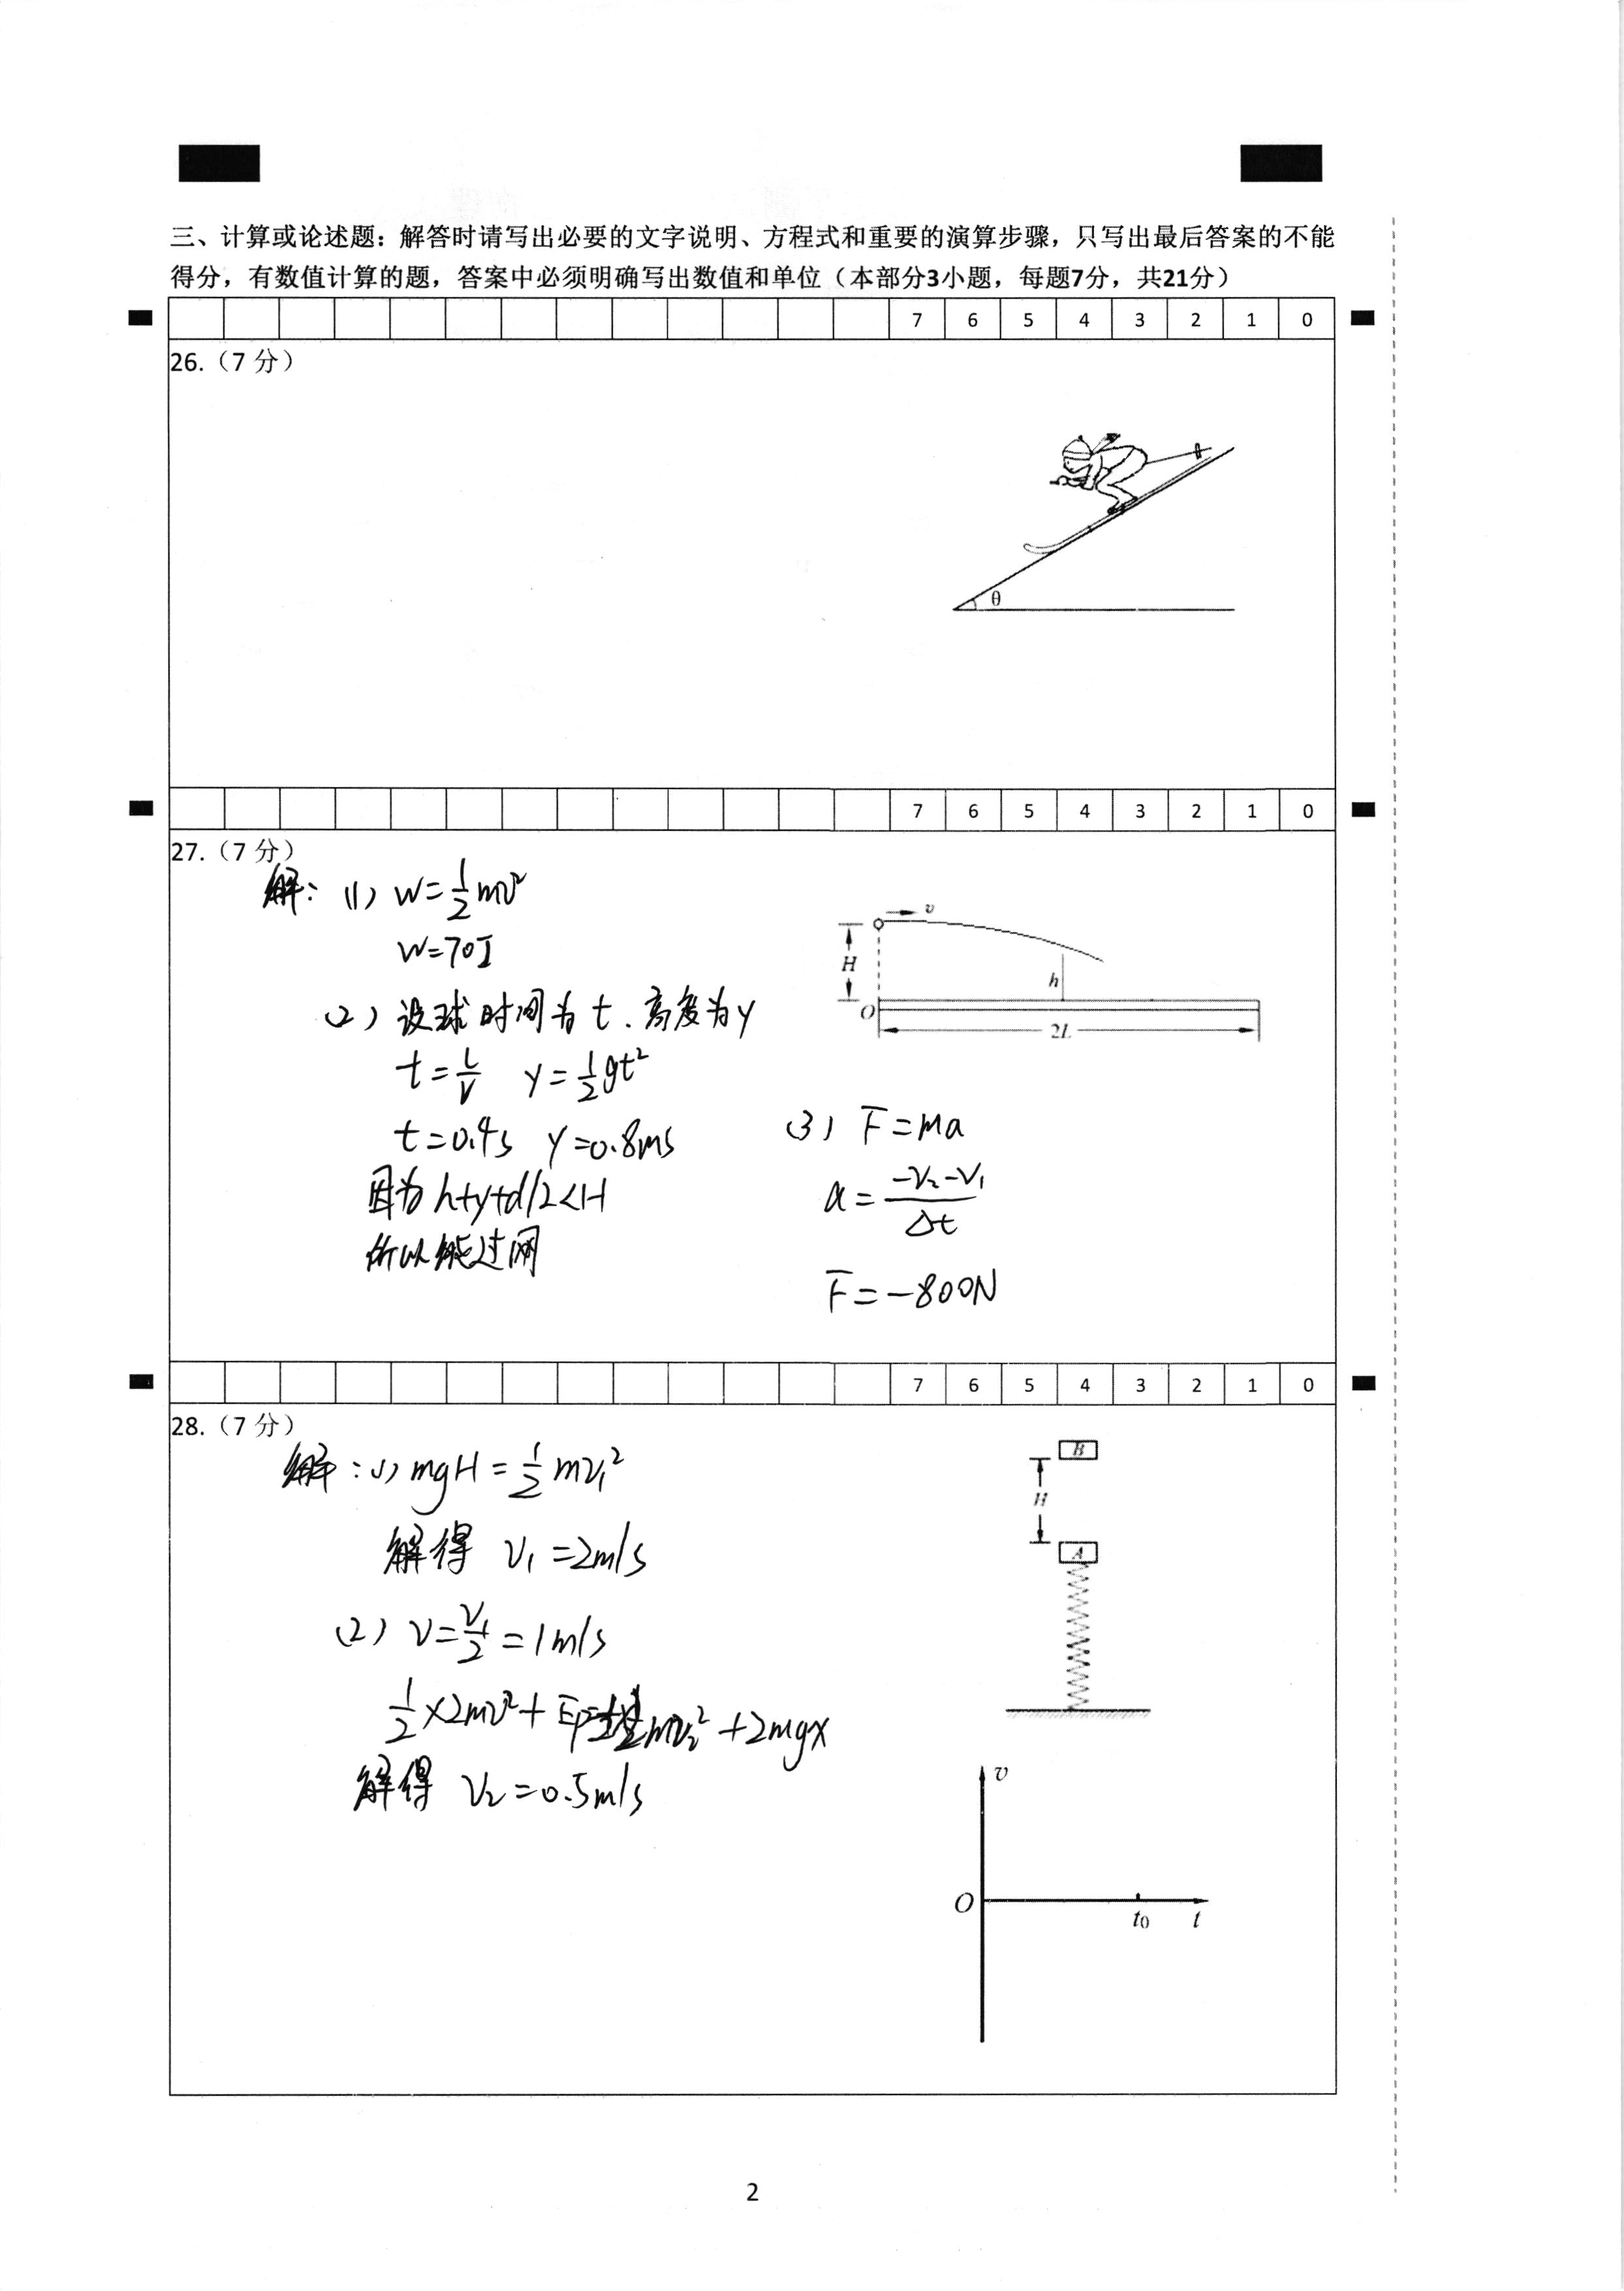 三、计算或论述题：解答时请写出必要的文字说明、方程式和重要的演算步骤，只写出最后答案的不能
得分，有数值计算的题，答案中必须明确写出数值和单位（本部分3小题，每题7分，共21分）
7 6 5 4 3 2 1 0
26.（7 分）
θ
7 6 5 4 3 2 1 0
27.（7 分）
解：(1) W=½mv²
W=70J
(2) 设球时间为t．高度为y
t=L/V y=½gt²
t=0.4s y=0.8ms
因为h+y+d/2<H
所以能过网
v
H
h
O
2L
(3) F=ma
a=(-V₂-V₁)/Δt
F=-800N
7 6 5 4 3 2 1 0
28.（7 分）
解：(1) mgH=½mv₁²
解得 V₁=2m/s
(2) V=V₁/2=1m/s
½×2mv²+Ep=½mv₂²+2mgx
解得 V₂=0.5m/s
B
H
A
v
O
t₀ t
2